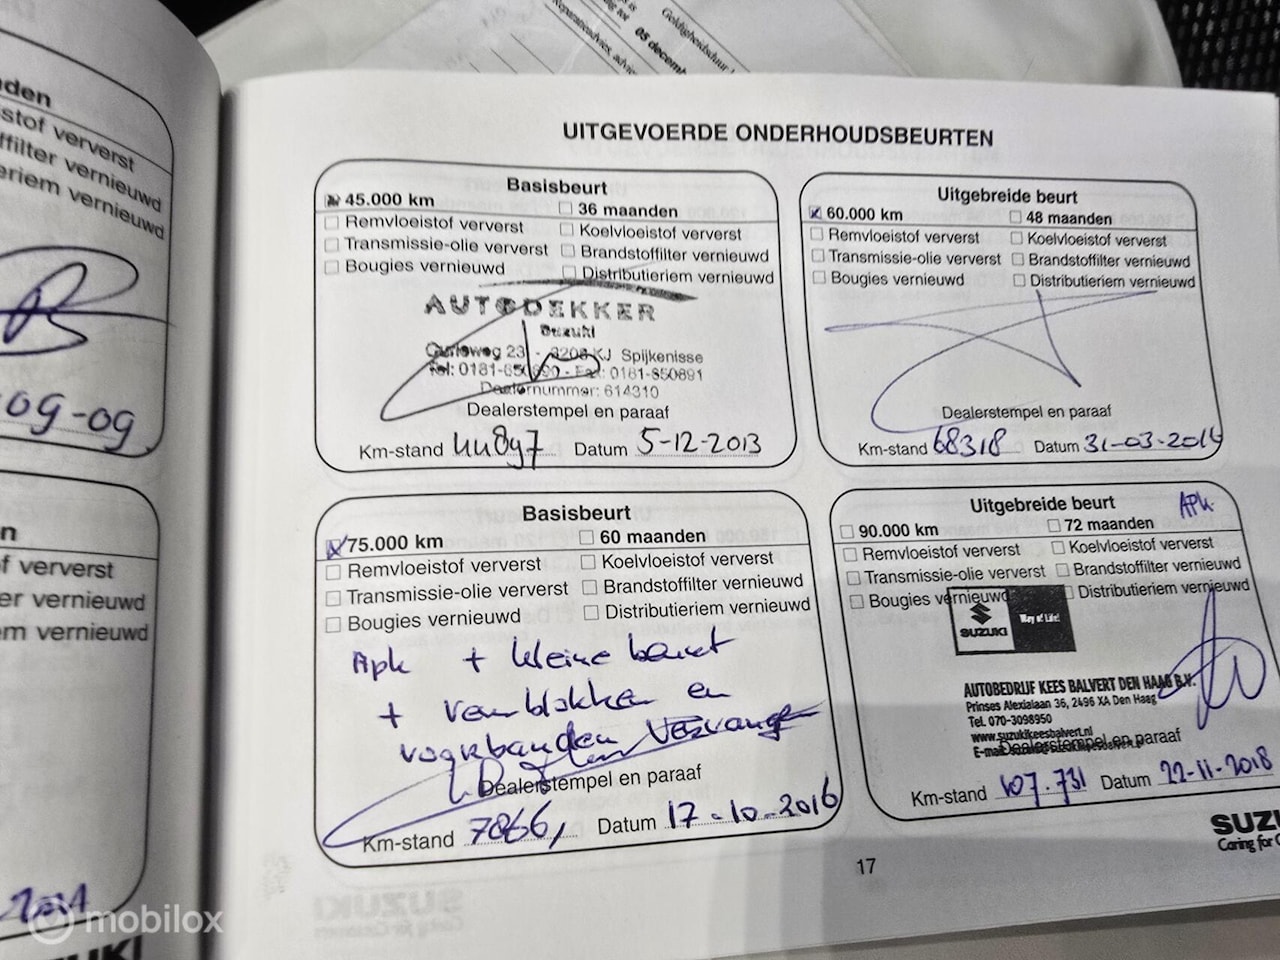 Geldigheidsduur
05 decemb
Reparatieadvies, advie
nden
stof ververst
ffilter vernieuwd
eriem vernieuwd
09-09
n
f ververst
er vernieuwd
em vernieuwd
UITGEVOERDE ONDERHOUDSBEURTEN
Basisbeurt
45.000 km 36 maanden
Remvloeistof ververst Koelvloeistof ververst
Transmissie-olie ververst Brandstoffilter vernieuwd
Bougies vernieuwd Distributieriem vernieuwd
AUTODEKKER
Suzuki
Curieweg 23 - 3208 KJ Spijkenisse
Tel: 0181-650890 - Fax: 0181-650891
Dealernummer: 614310
Dealerstempel en paraaf
Km-stand 44897 Datum 5-12-2013
Uitgebreide beurt
60.000 km 48 maanden
Remvloeistof ververst Koelvloeistof ververst
Transmissie-olie ververst Brandstoffilter vernieuwd
Bougies vernieuwd Distributieriem vernieuwd
Dealerstempel en paraaf
Km-stand 68318 Datum 31-03-2016
Basisbeurt
75.000 km 60 maanden
Remvloeistof ververst Koelvloeistof ververst
Transmissie-olie ververst Brandstoffilter vernieuwd
Bougies vernieuwd Distributieriem vernieuwd
Apk + kleine beurt
+ remblokken en
Dealerstempel en paraaf
Km-stand Datum 17-10-2016
Uitgebreide beurt Apk
90.000 km 72 maanden
Remvloeistof ververst Koelvloeistof ververst
Transmissie-olie ververst Brandstoffilter vernieuwd
Bougies vernieuwd Distributieriem vernieuwd
SUZUKI Way of Life!
AUTOBEDRIJF KEES BALVERT DEN HAAG B.V.
Prinses Alexialaan 36, 2496 XA Den Haag
Tel. 070-3098950
www.suzukikeesbalvert.nl
Dealerstempel en paraaf
Km-stand 107.731 Datum 22-11-2018
SUZU
Caring for C
17
mobilox
ZUKI